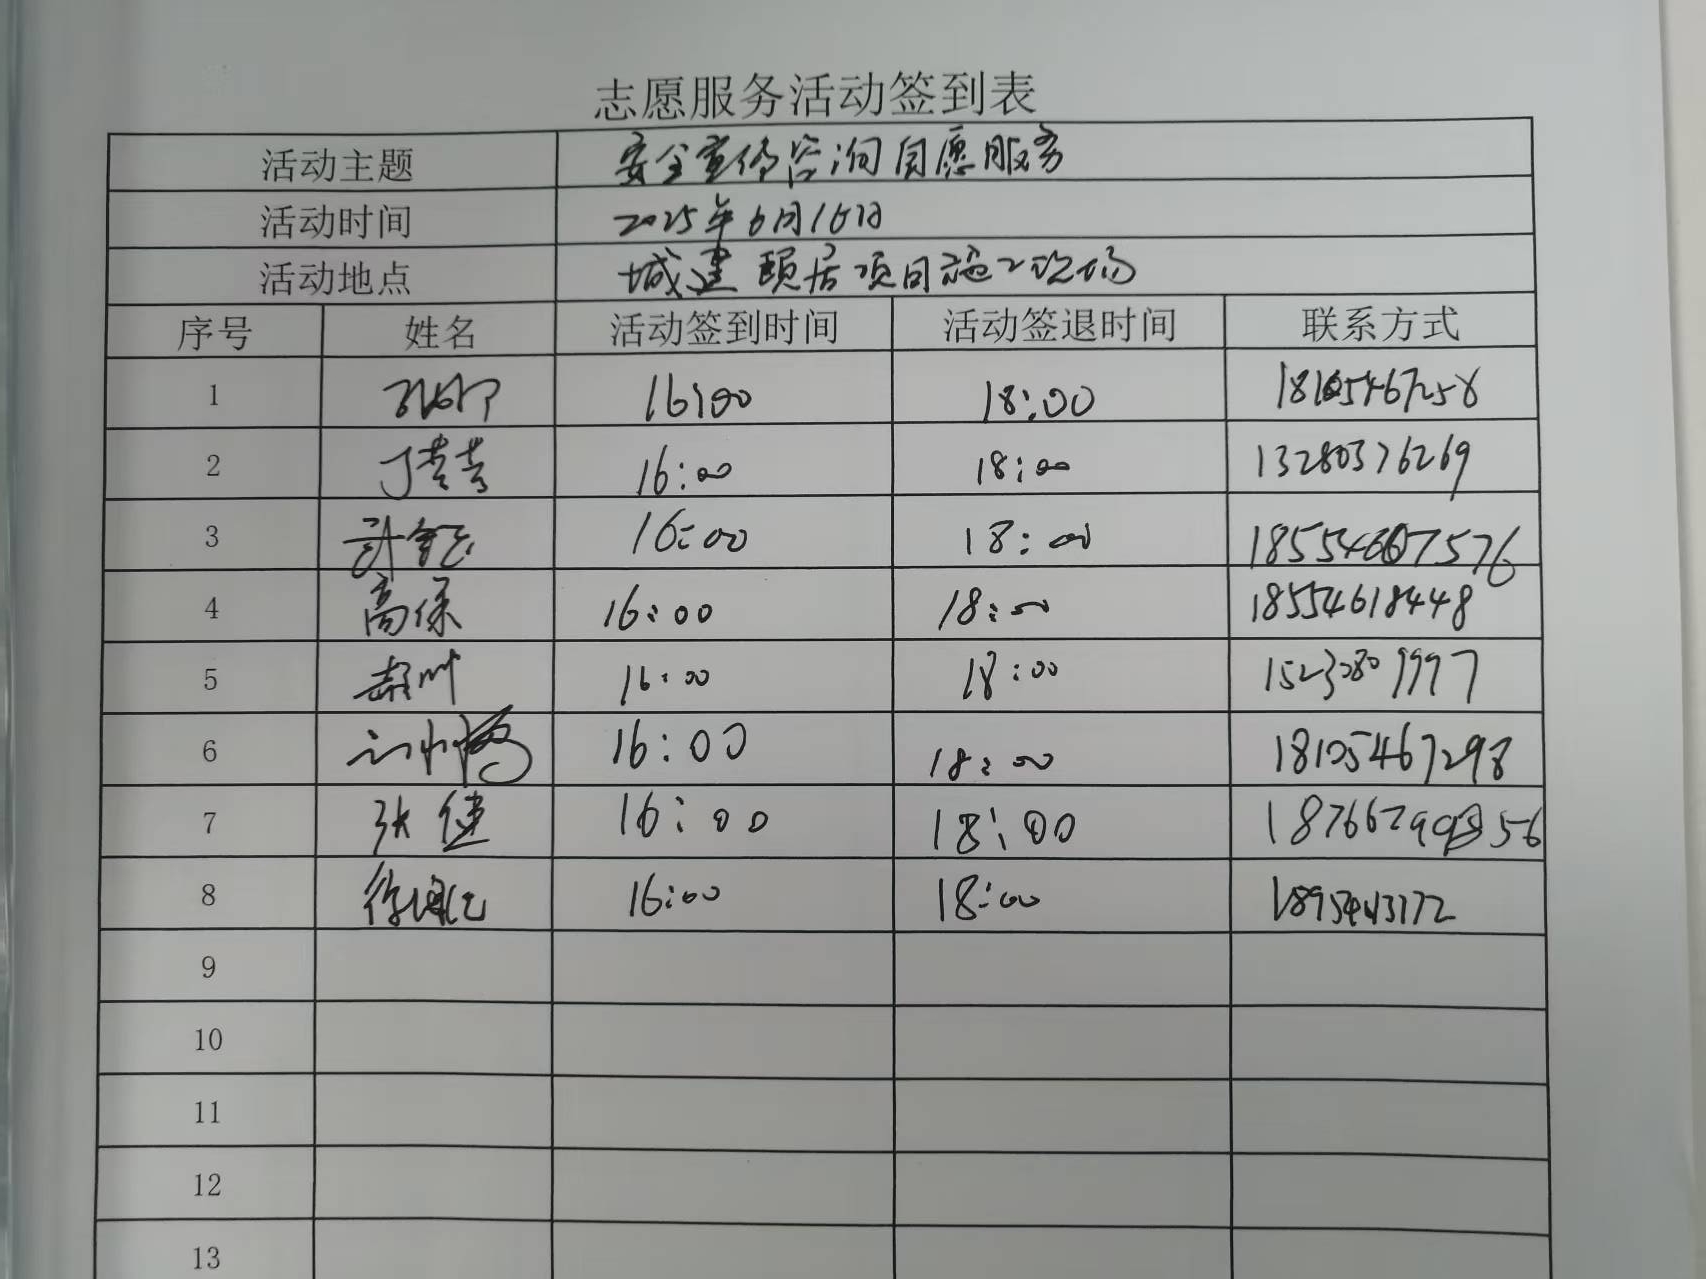 志愿服务活动签到表
活动主题 安全宣传咨询自愿服务
活动时间 2025年6月16日
活动地点 城建颐居项目施工现场
序号 姓名 活动签到时间 活动签退时间 联系方式
1 16:00 18:00 18105467258
2 丁青青 16:00 18:00 13280376269
3 16:00 18:00 18554607576
4 高保 16:00 18:00 18554618448
5 16:00 18:00 15230809997
6 16:00 18:00 18105467298
7 张健 16:00 18:00
8 16:00 18:00
9
10
11
12
13